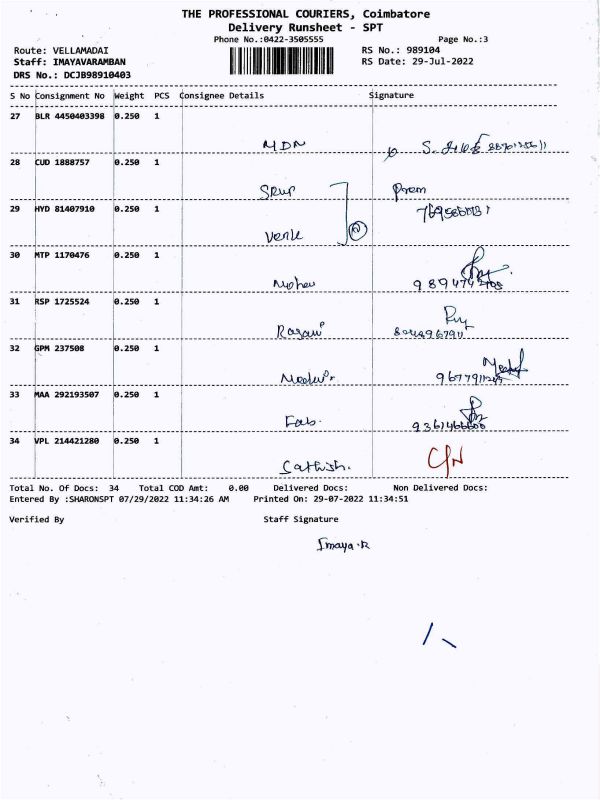 THE PROFESSIONAL COURIERS, Coimbatore
Delivery Runsheet - SPT
Phone No.:0422-3505555
Page No.:3
Route: VELLAMADAI
RS No.: 989104
Staff: IMAYAVARAMBAN
RS Date: 29-Jul-2022
DRS No.: DCJB98910403
S No Consignment No Weight PCS Consignee Details Signature
27 BLR 4450403398 0.250 1
MDN
28 CUD 1888757 0.250 1
Prem
29 HYD 81407910 0.250 1
30 MTP 1170476 0.250 1
Mohan
31 RSP 1725524 0.250 1
32 GPM 237508 0.250 1
33 MAA 292193507 0.250 1
Fab.
34 VPL 214421280 0.250 1
Sathish.
Total No. Of Docs: 34 Total COD Amt: 0.00 Delivered Docs: Non Delivered Docs:
Entered By :SHARONSPT 07/29/2022 11:34:26 AM Printed On: 29-07-2022 11:34:51
Verified By Staff Signature
Imaya.R